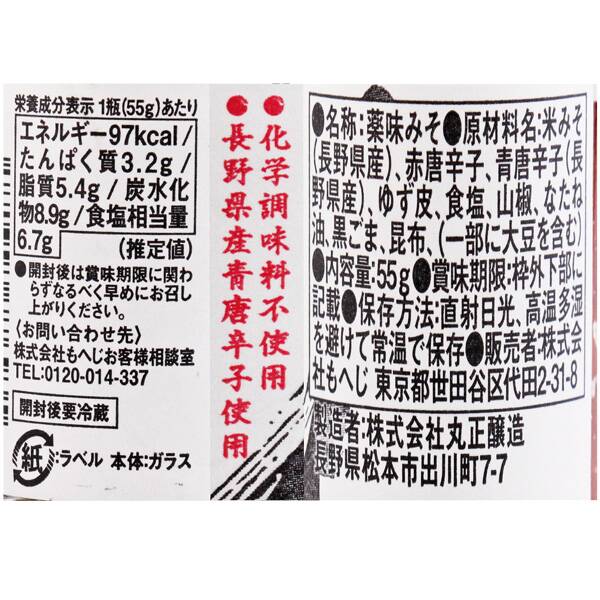 栄養成分表示 1瓶(55g)あたり
エネルギー97kcal/
たんぱく質3.2g/
脂質5.4g/炭水化
物8.9g/食塩相当量
6.7g
(推定値)
●開封後は賞味期限に関わ
らずなるべく早めにお召し
上がりください。
〈お問い合わせ先〉
株式会社もへじお客様相談室
TEL:0120-014-337
開封後要冷蔵
紙:ラベル 本体:ガラス
●化学調味料不使用
●長野県産青唐辛子使用
●名称:薬味みそ●原材料名:米みそ
(長野県産)、赤唐辛子、青唐辛子(長
野県産)、ゆず皮、食塩、山椒、なたね
油、黒ごま、昆布、(一部に大豆を含む)
●内容量:55g●賞味期限:枠外下部に
記載●保存方法:直射日光、高温多湿
を避けて常温で保存●販売者:株式会
社もへじ 東京都世田谷区代田2-31-8
製造者:株式会社丸正醸造
長野県松本市出川町7-7